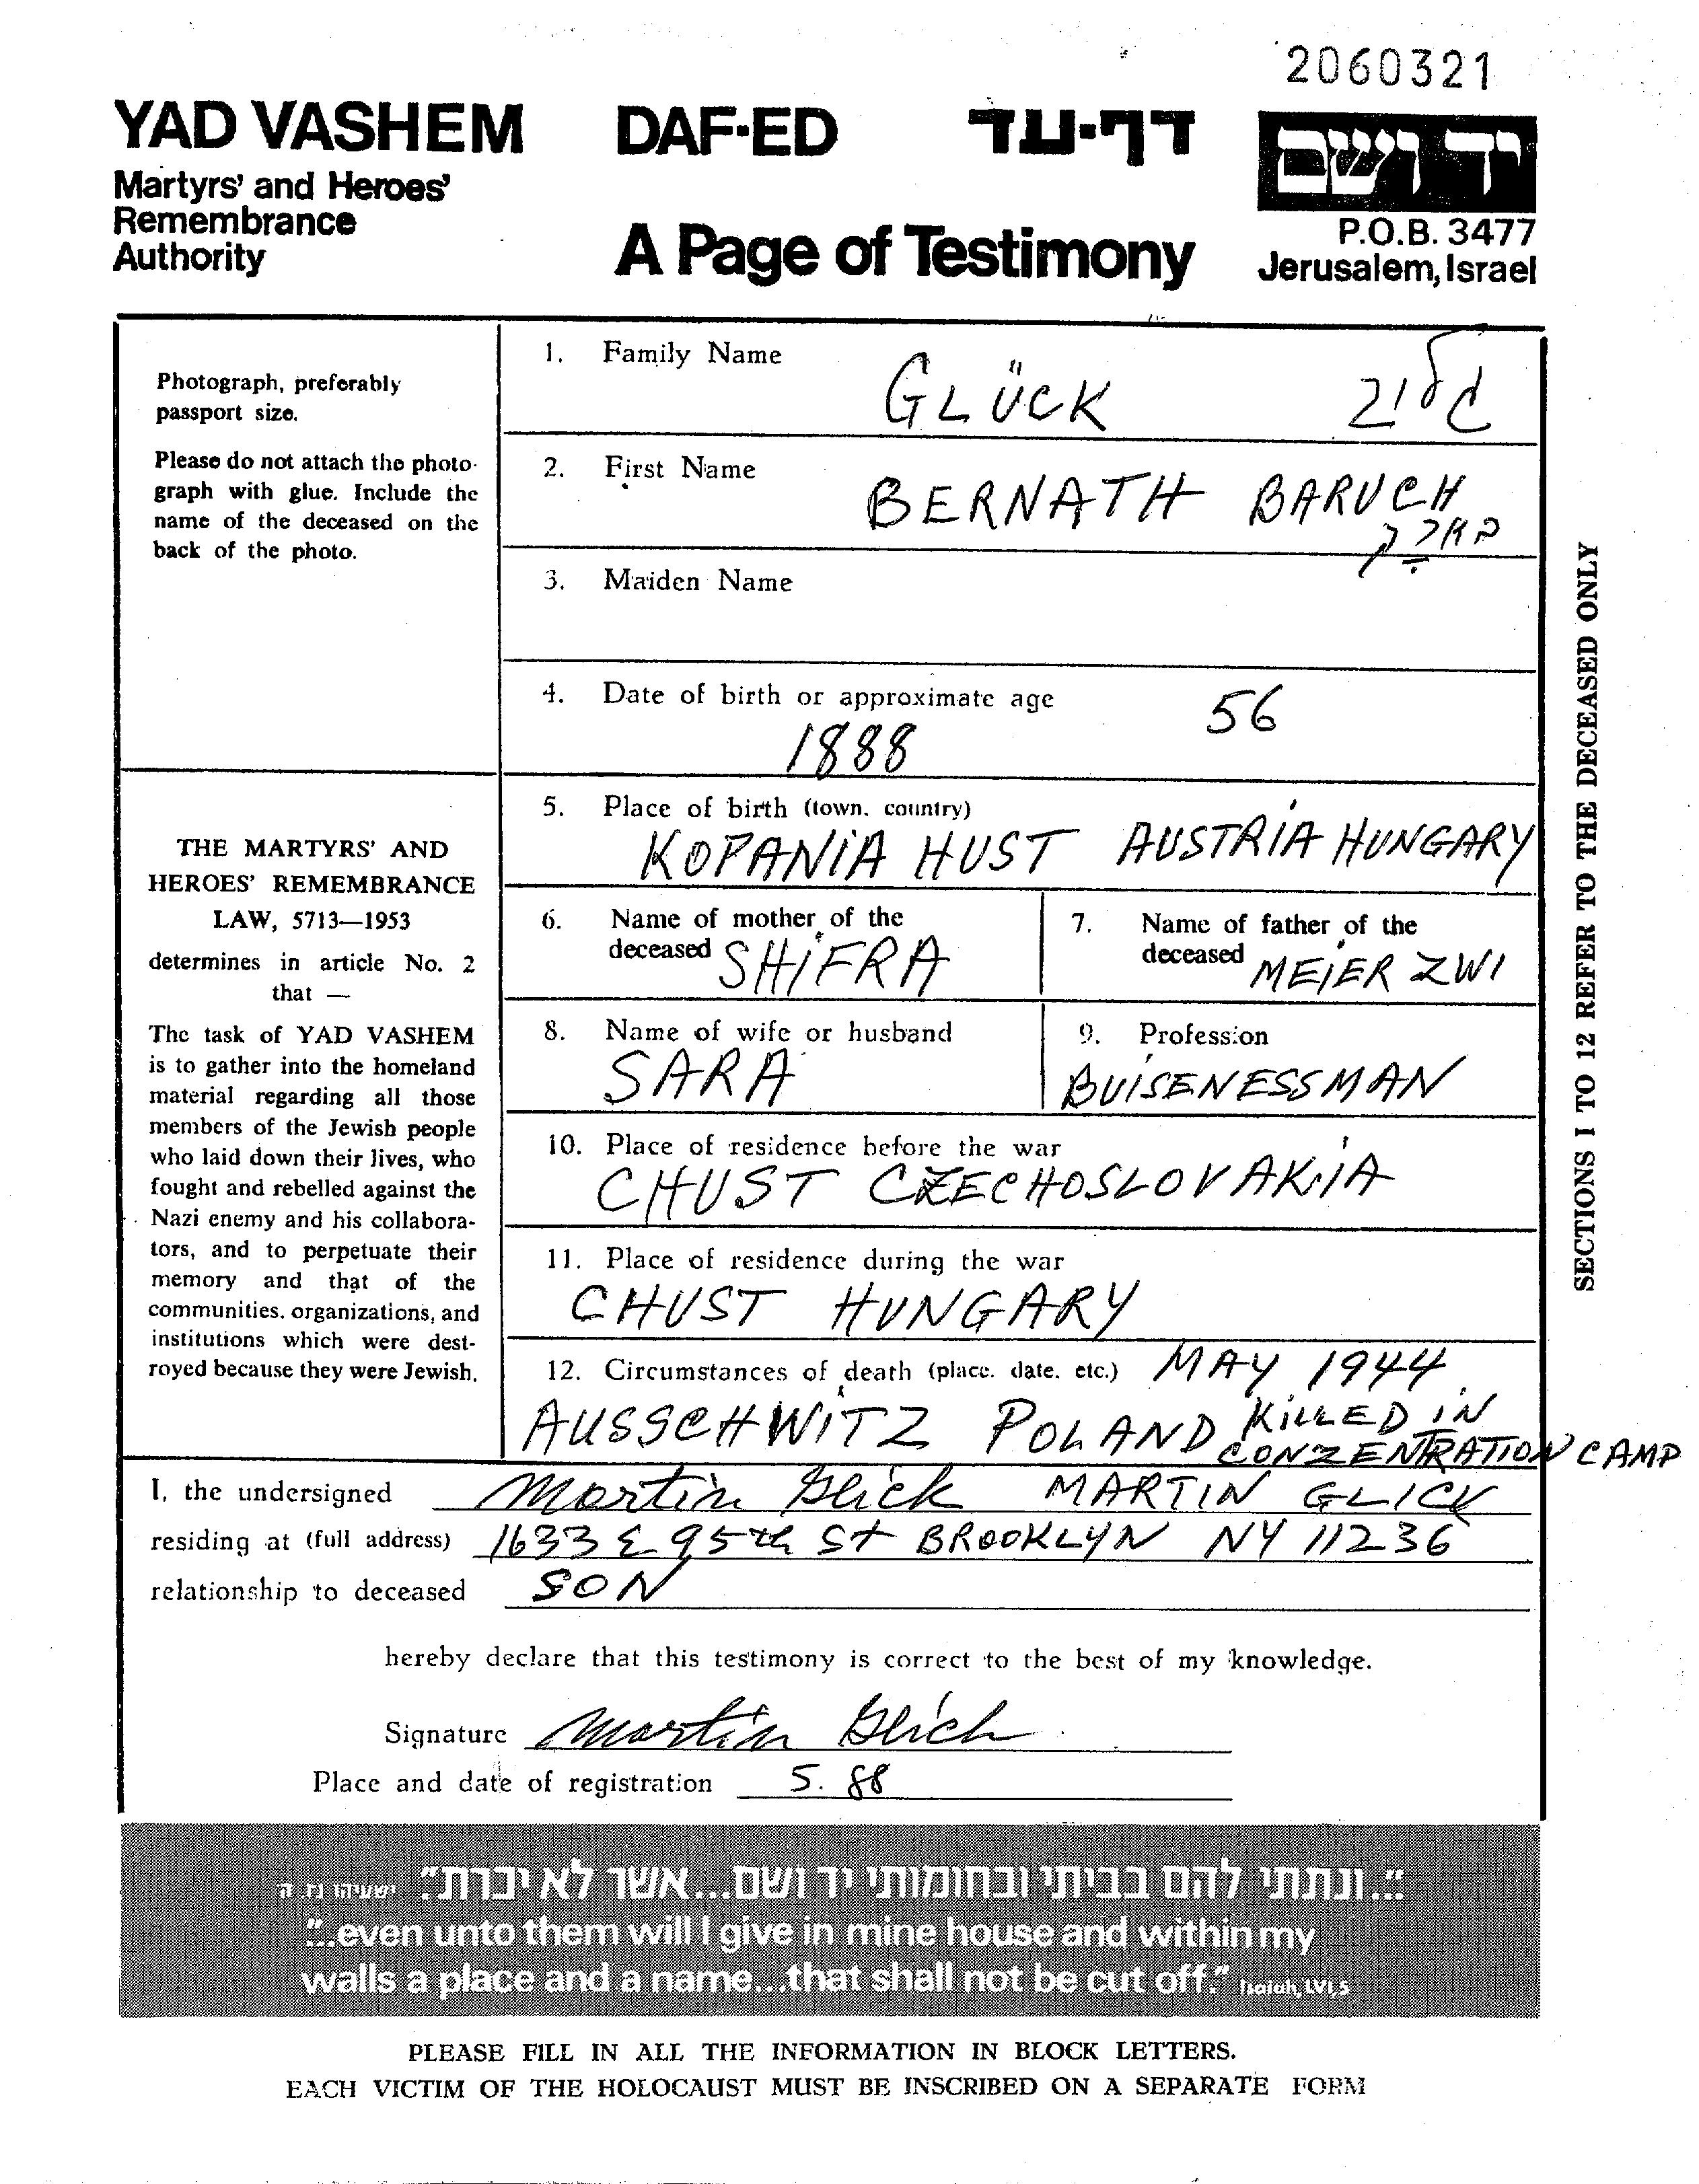 2060321
YAD VASHEM DAF-ED דף-עד יד ושם
Martyrs' and Heroes'
Remembrance
Authority
A Page of Testimony
P.O.B. 3477
Jerusalem, Israel
Photograph, preferably
passport size.
Please do not attach the photo-
graph with glue. Include the
name of the deceased on the
back of the photo.
THE MARTYRS' AND
HEROES' REMEMBRANCE
LAW, 5713—1953
determines in article No. 2
that —
The task of YAD VASHEM
is to gather into the homeland
material regarding all those
members of the Jewish people
who laid down their lives, who
fought and rebelled against the
Nazi enemy and his collabora-
tors, and to perpetuate their
memory and that of the
communities, organizations, and
institutions which were dest-
royed because they were Jewish.
1. Family Name
GLÜCK
2. First Name
BERNATH BARUCH
3. Maiden Name
4. Date of birth or approximate age 56
1888
5. Place of birth (town, country)
KOPANIA HUST AUSTRIA HUNGARY
6. Name of mother of the
deceased SHIFRA
7. Name of father of the
deceased MEIER ZWI
8. Name of wife or husband
SARA
9. Profession
BUISENESSMAN
10. Place of residence before the war
CHUST CZECHOSLOVAKIA
11. Place of residence during the war
CHUST HUNGARY
12. Circumstances of death (place, date, etc.) MAY 1944
AUSSCHWITZ POLAND KILLED IN
CONZENTRATION CAMP
SECTIONS 1 TO 12 REFER TO THE DECEASED ONLY
I, the undersigned Martin Glick MARTIN GLICK
residing at (full address) 1633 E 95th St BROOKLYN NY 11236
relationship to deceased SON
hereby declare that this testimony is correct to the best of my knowledge.
Signature Martin Glick
Place and date of registration 5. 88
"...ונתתי להם בביתי ובחומותי יד ושם...אשר לא יכרת" ישעיהו נו, ה
"...even unto them will I give in mine house and within my
walls a place and a name...that shall not be cut off." Isaiah, LVI, 5
PLEASE FILL IN ALL THE INFORMATION IN BLOCK LETTERS.
EACH VICTIM OF THE HOLOCAUST MUST BE INSCRIBED ON A SEPARATE FORM